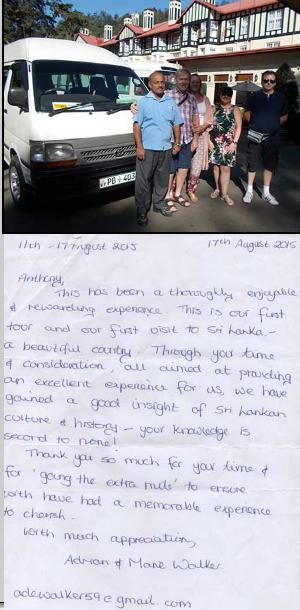 PB-403
11th - 17 August 2015 17th August 2015
Anthony,
This has been a thoroughly enjoyable
& rewarding experience. This is our first
tour and our first visit to Sri Lanka -
a beautiful country. Through your time
& consideration, all aimed at providing
an excellent experience for us, we have
gained a good insight of Sri Lankan
culture & history - your knowledge is
second to none!
Thank you so much for your time &
for 'going the extra mile' to ensure
have had a memorable experience
to cherish.
With much appreciation,
Adrian & Walker
adewalker59@gmail.com